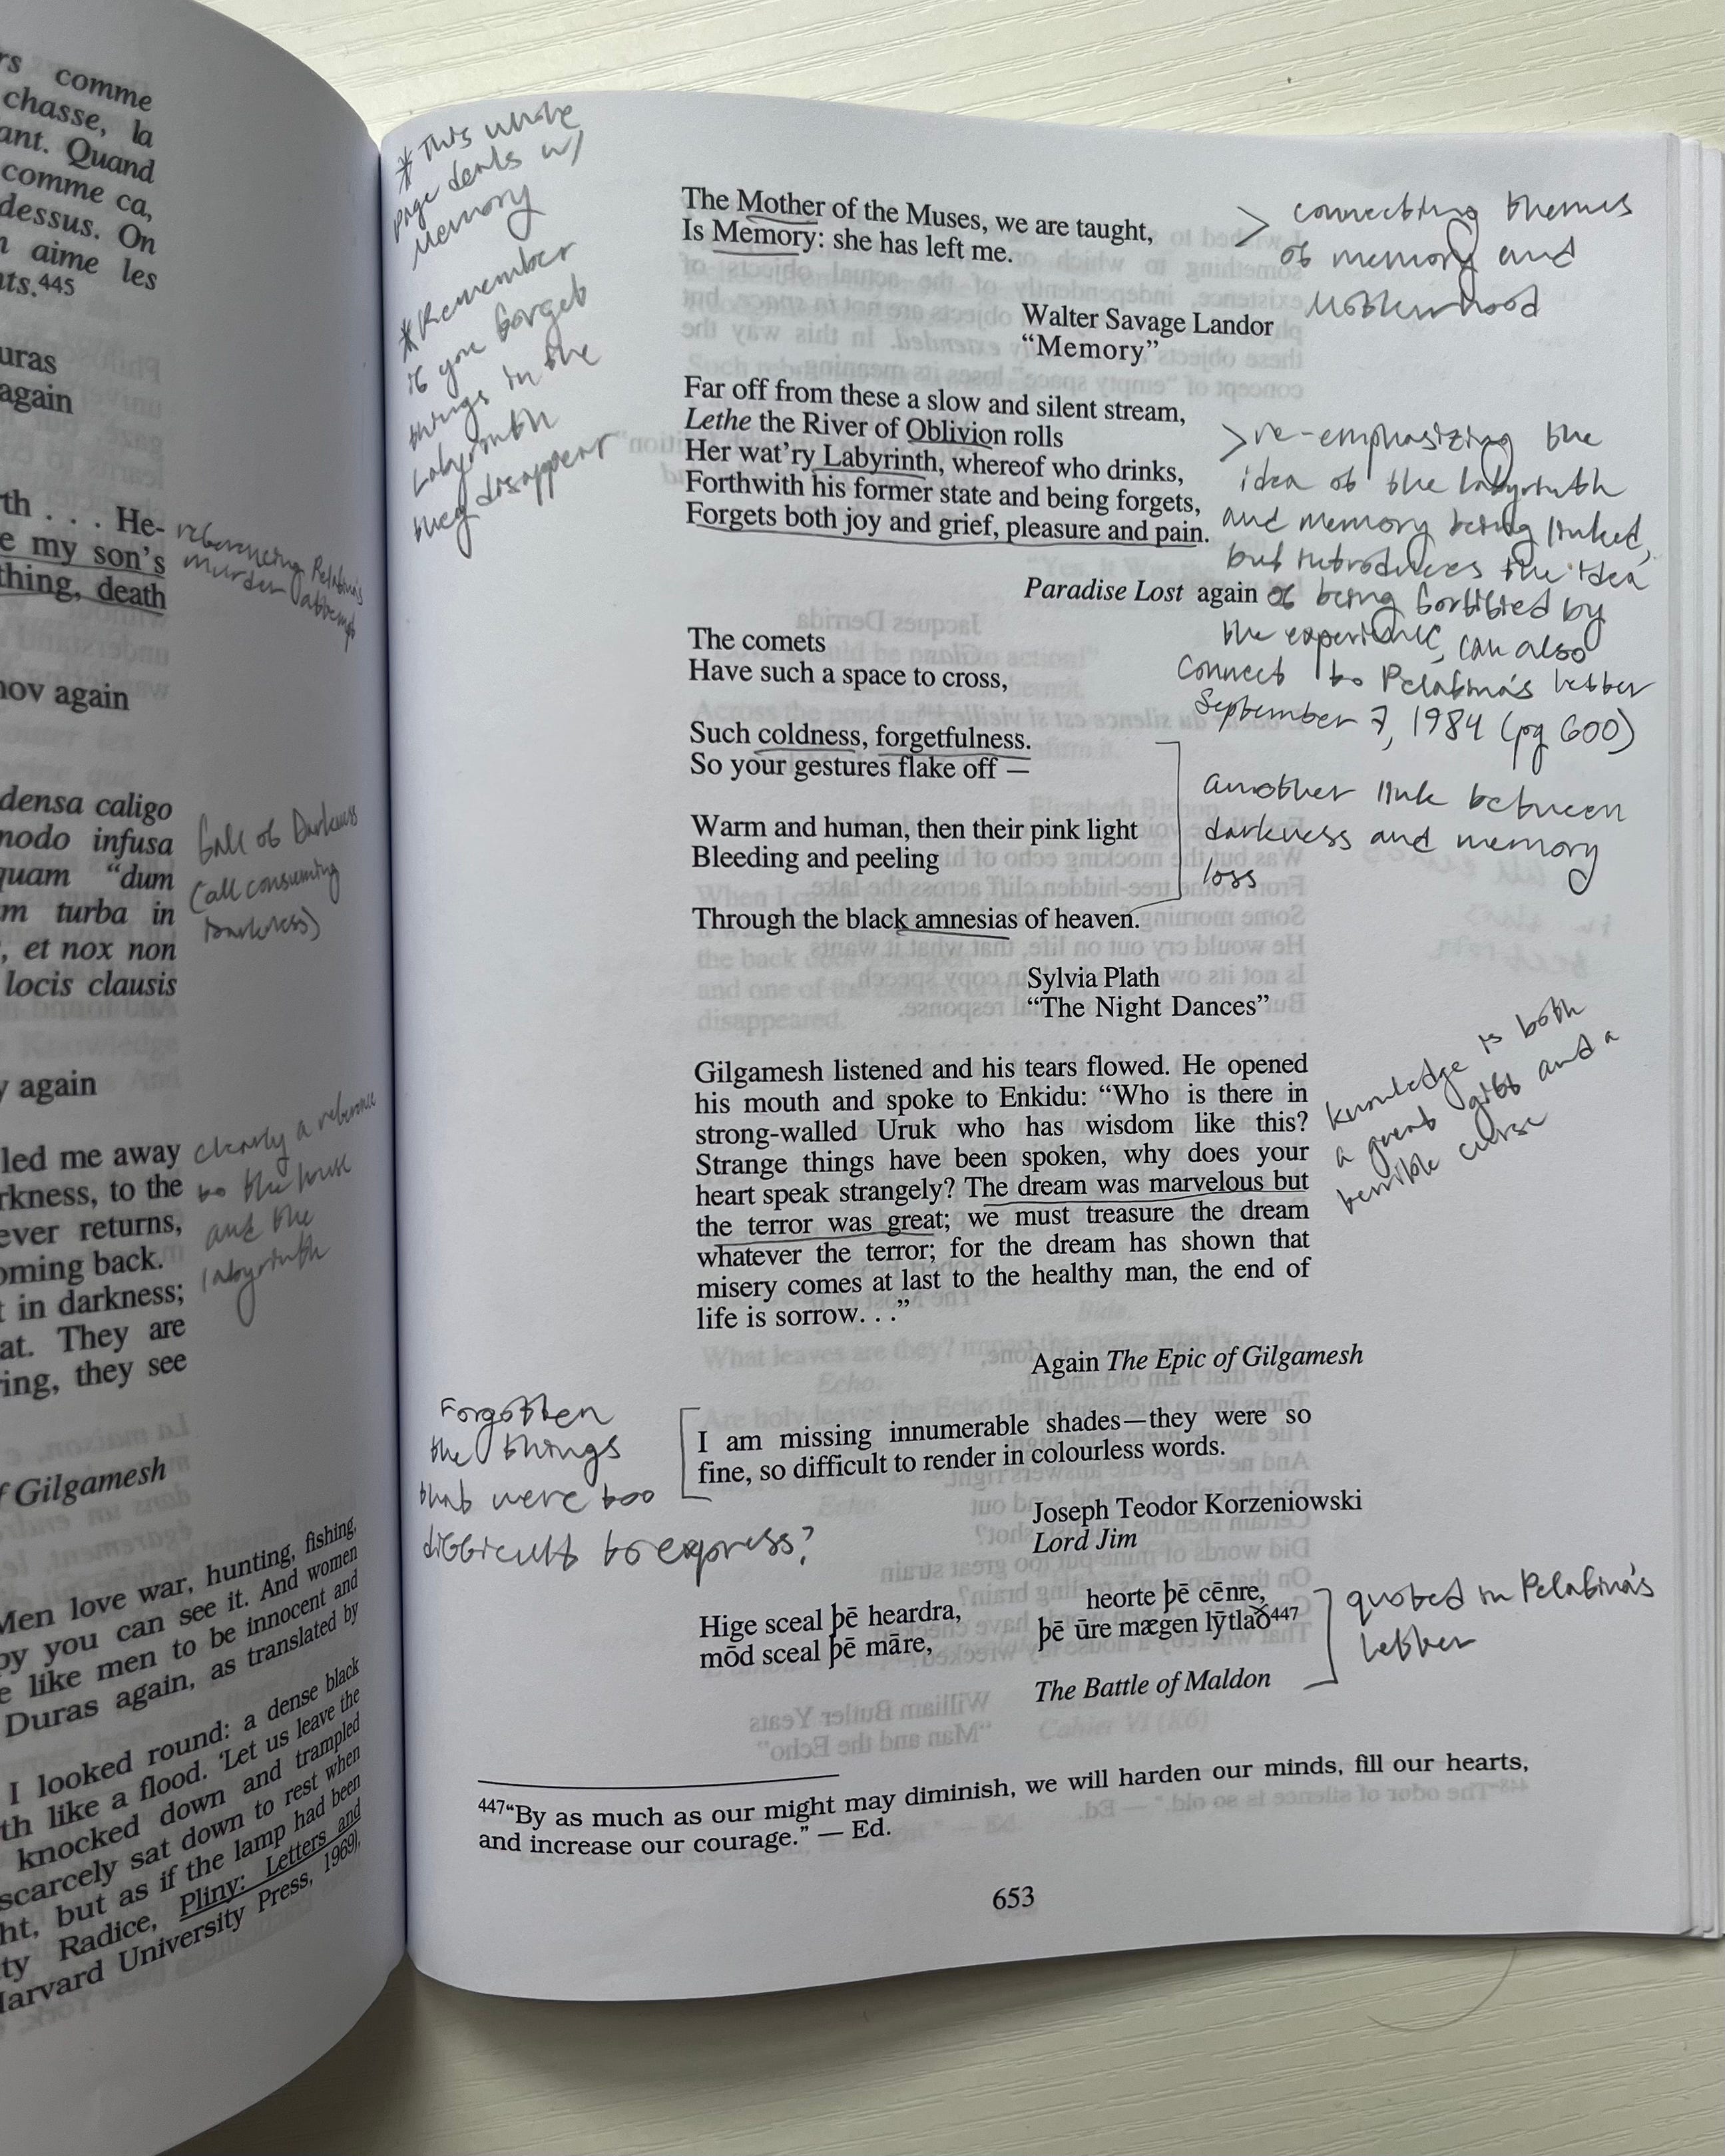 rs comme
chasse, la
ant. Quand
comme ca,
dessus. On
n aime les
nts.445
uras
again
th . . . He-
e my son's
thing, death
referencing Pelafina's
murder attempt
nov again
densa caligo
modo infusa
quam “dum
m turba in
, et nox non
locis clausis
fall of Darkness
(all consuming
Darkness)
y again
led me away
rkness, to the
ever returns,
oming back.
t in darkness;
at. They are
ring, they see
clearly a reference
to the house
and the
labyrinth
f Gilgamesh
Men love war, hunting, fishing,
py you can see it. And women
e like men to be innocent and
Duras again, as translated by
I looked round: a dense black
th like a flood. 'Let us leave the
knocked down and trampled
scarcely sat down to rest when
ht, but as if the lamp had been
ty Radice, Pliny: Letters and
Harvard University Press, 1969),
* This whole
page deals w/
Memory
* Remember
if you forget
things in the
Labyrinth
they disappear
The Mother of the Muses, we are taught,
Is Memory: she has left me.
> connecting themes
of memory and
Motherhood
Walter Savage Landor
“Memory”
Far off from these a slow and silent stream,
Lethe the River of Oblivion rolls
Her wat'ry Labyrinth, whereof who drinks,
Forthwith his former state and being forgets,
Forgets both joy and grief, pleasure and pain.
Paradise Lost again
> re-emphasizing the
idea of the labyrinth
and memory being linked,
but introduces the idea
of being fortified by
the experience, can also
connect to Pelafina's letter
September 7, 1984 (pg 600)
The comets
Have such a space to cross,
Such coldness, forgetfulness.
So your gestures flake off —
Warm and human, then their pink light
Bleeding and peeling
Through the black amnesias of heaven.
another link between
darkness and memory
loss
Sylvia Plath
“The Night Dances”
Gilgamesh listened and his tears flowed. He opened
his mouth and spoke to Enkidu: “Who is there in
strong-walled Uruk who has wisdom like this?
Strange things have been spoken, why does your
heart speak strangely? The dream was marvelous but
the terror was great; we must treasure the dream
whatever the terror; for the dream has shown that
misery comes at last to the healthy man, the end of
life is sorrow. . .”
knowledge is both
a great gift and a
terrible curse
Again The Epic of Gilgamesh
Forgotten
the things
that were too
difficult to express?
I am missing innumerable shades—they were so
fine, so difficult to render in colourless words.
Joseph Teodor Korzeniowski
Lord Jim
Hige sceal þē heardra, heorte þē cēnre,
mōd sceal þē māre, þē ūre mægen lȳtlað447
The Battle of Maldon
quoted in Pelafina's
letter
447“By as much as our might may diminish, we will harden our minds, fill our hearts,
and increase our courage.” — Ed.
653